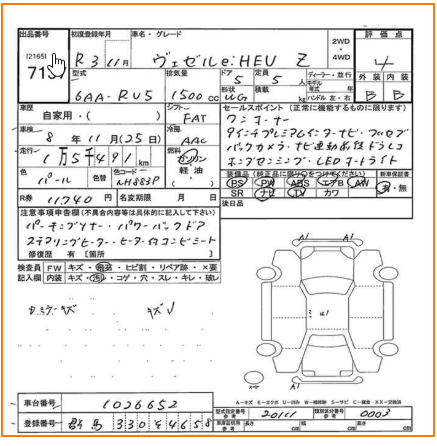 出品番号 初度登録年月 車名・グレード 評価点
[2165] R3 11月 ヴェゼル e:HEV Z 2WD 4WD 4
型式 排気量 ドア 定員 ディーラー・並行 外装 内装
6AA-RV5 1500 cc 5 5人 モデル年式 年
形状 積載 ハンドル 左・右 B B
WG kg
車歴 シフト セールスポイント (正常に機能するものに限ります)
自家用・( ) FAT ワンオーナー
車検 冷房
8年11月(25日) AAC
走行 燃料 バックカメラ・ナビ連動前後ドラレコ
1万5千491 km ガソリン ホンダセンシング・LEDオートライト
色 色替 色コード 軽油
パール NH883P ( )
装備品 (純正品に限り○をつけてください) 新車保証書
PS PW ABS エアB AW 有・無
SR ナビ TV カワ
R券 11,740円 名変期限 月 日 後日品
注意事項申告欄(不具合内容等は具体的に記入して下さい)
パーキングソナー・パワーバックドア
ステアリングヒーター・ヒーター付コンビシート
修復歴 有 [箇所 ]
検査員記入欄 FW キズ・飛石・ヒビ割・リペア跡・×要
内装 キズ・汚れ・コゲ・穴・スレ・キレ・破レ
A1 A1
A1
車台番号 1026652
A-キズ E-エクボ U-凹み W-補修跡 S-サビ C-腐食 XX-交換済
型式指定番号 20111 類別区分番号 0003
登録番号 群馬 330 4658
長さ cm 幅 cm 高さ cm